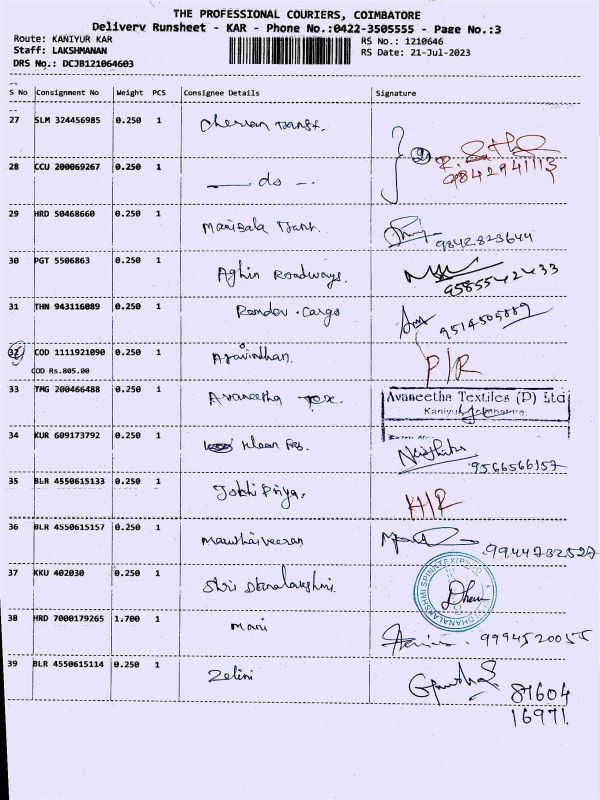 THE PROFESSIONAL COURIERS, COIMBATORE
Delivery Runsheet - KAR - Phone No.:0422-3505555 - Page No.:3
Route: KANIYUR KAR RS No.: 1210646
Staff: LAKSHMANAN RS Date: 21-Jul-2023
DRS No.: DCJB121064603
S No Consignment No Weight PCS Consignee Details Signature
27 SLM 324456985 0.250 1 Cherran
9842941113
28 CCU 200069267 0.250 1 — do —.
29 HRD 50468660 0.250 1 9842823644
30 PGT 5506863 0.250 1 Aghin Roadways. 9585542433
31 THN 943116089 0.250 1 Randev . Cargo 9514505889
32 COD 1111921090 0.250 1 Aravindhan. P/R
COD Rs.805.00
33 TMG 200466488 0.250 1 Avaneetha Tex. Avaneetha Textiles (P) Ltd
Kaniyur,
34 KUR 609173792 0.250 1 Kleen 9566566157
35 BLR 4550615133 0.250 1 Priya. H/R
36 BLR 4550615157 0.250 1 9944732527
37 KKU 402030 0.250 1 Shri Dhanalakshmi.
38 HRD 7000179265 1.700 1 Mani 9994520055
39 BLR 4550615114 0.250 1 Zelini 87604
16971.